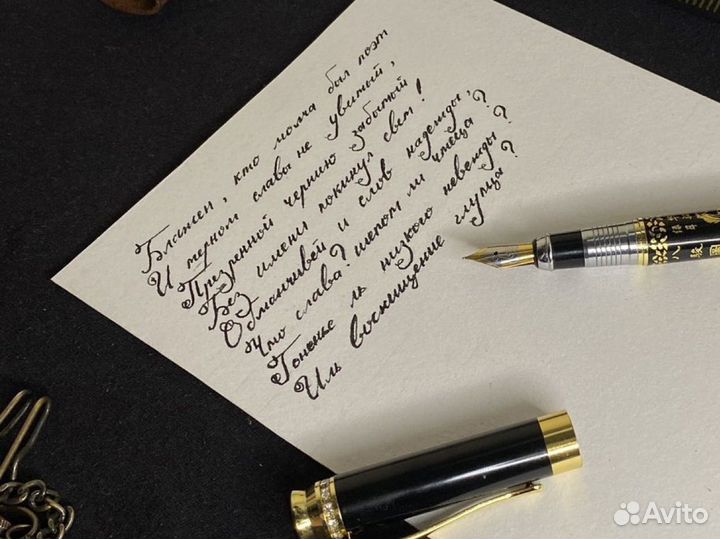 Блажен, кто молча был поэт
И терном славы не увитый,
Презренной чернию забытый
Без имени покинул свет!
Обманчивей и слов надежды,
Что слава? шепот ли чтеца?
Гоненье ль низкого невежды?
Иль восхищение глупца?
Avito